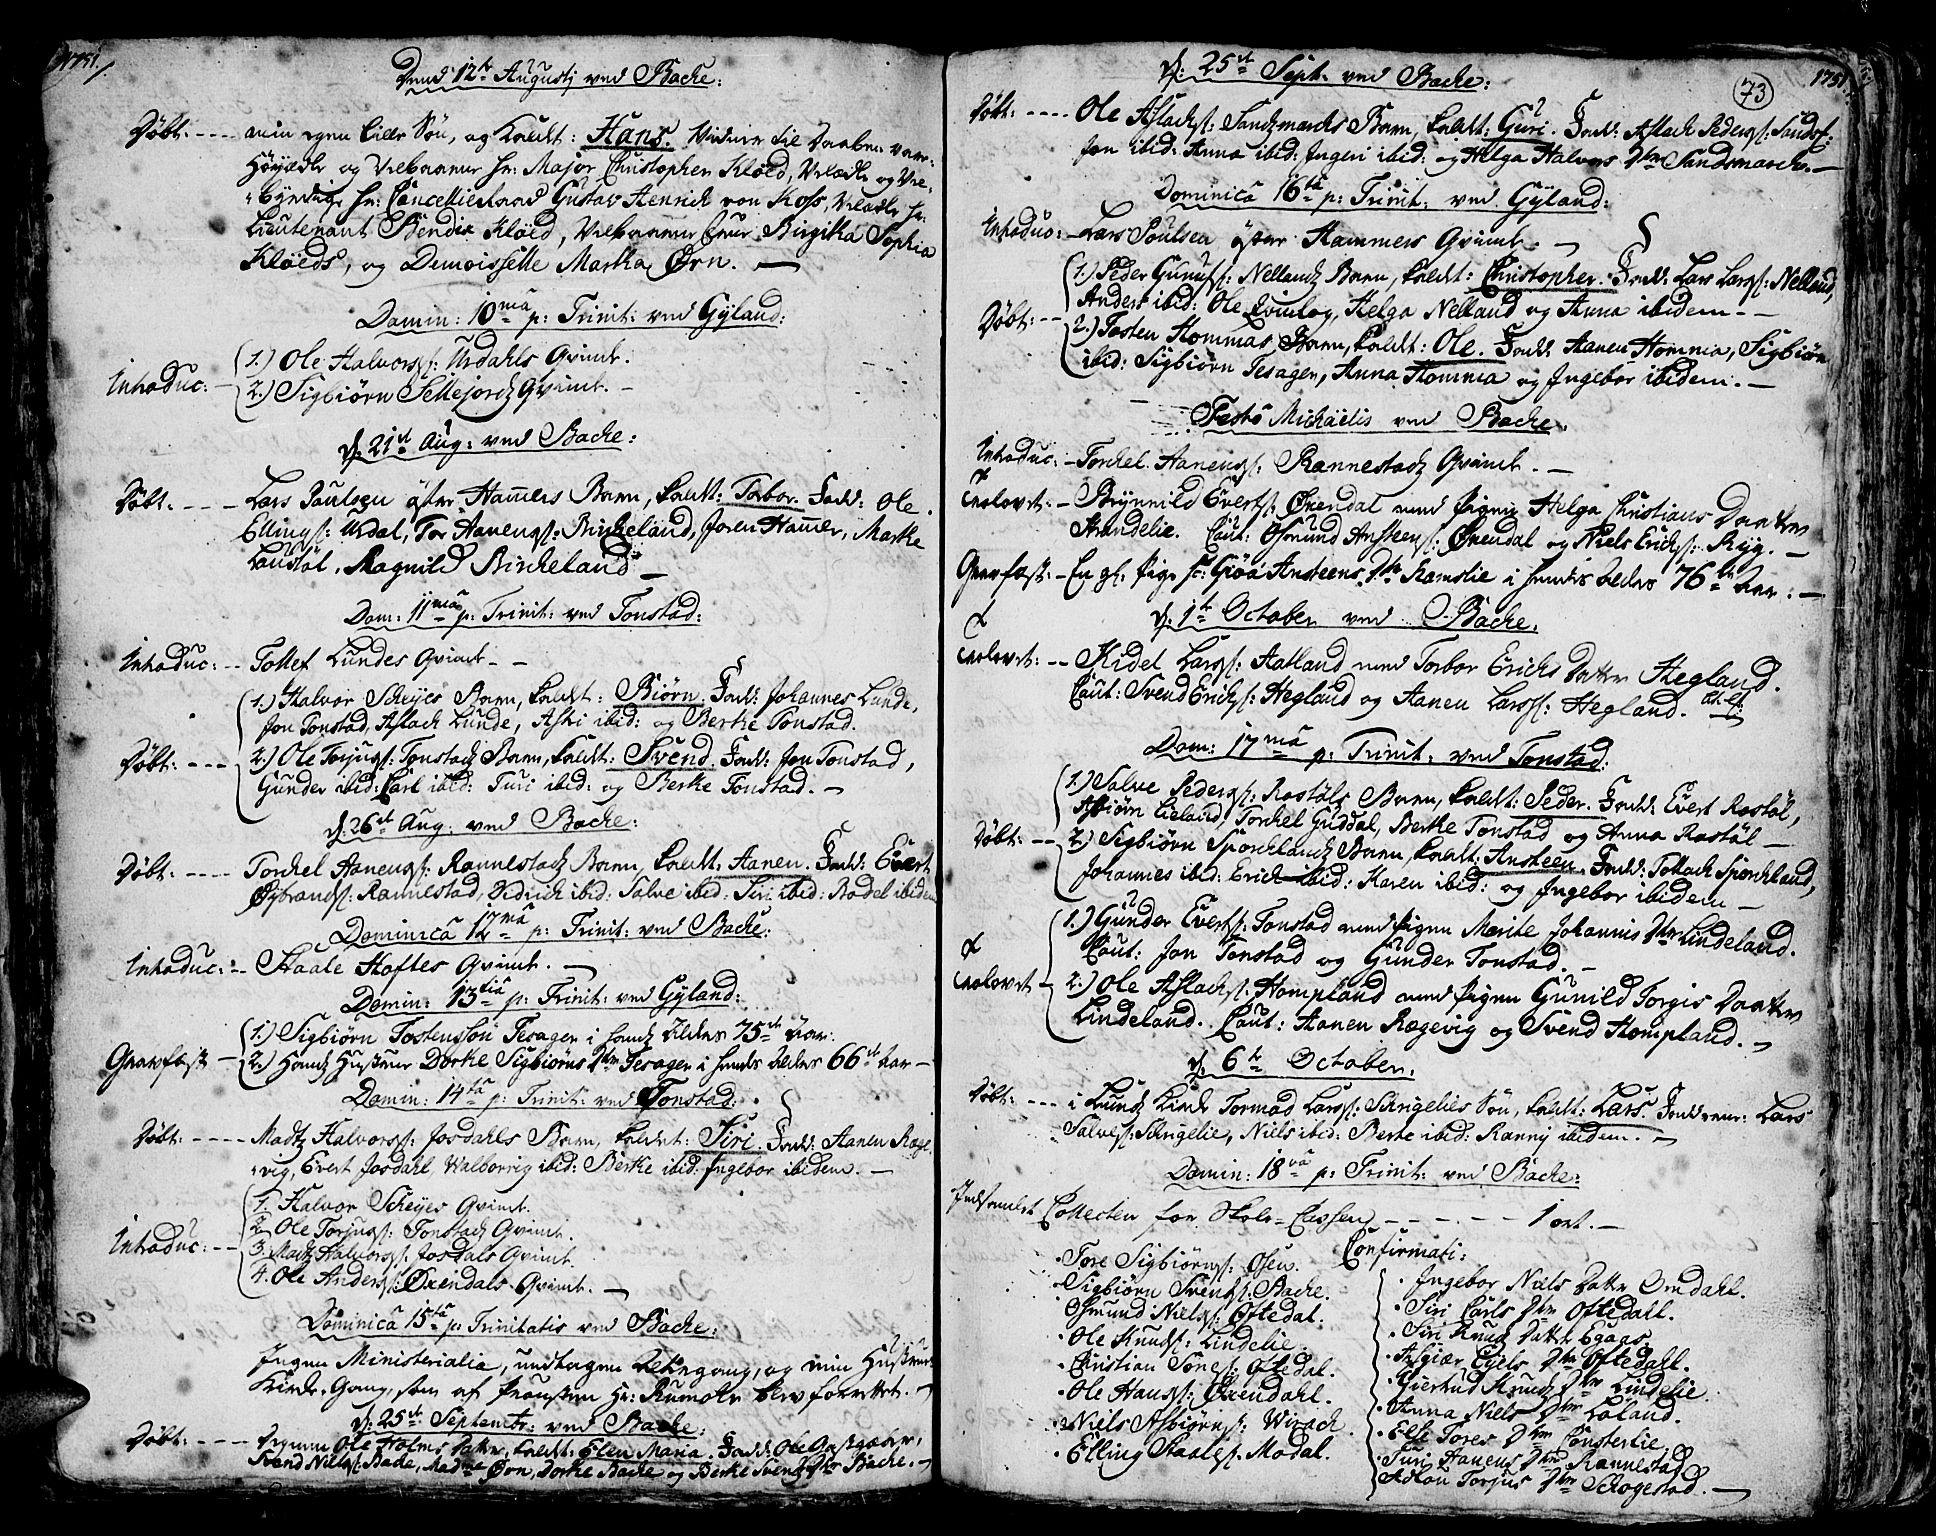 1751.
Dend 12te Augustj ved Backe:
Døbt: ---- min egen lille Søn, og kaldt: Hans. Viduer til Daaben vare:
Høyædle og Velbaarne Hr: Major Christopher Kløed, Velædle og Vel-
byrdige Hr: Cancellieraad Gustav Henrich von Koss, Velædle Hr:
Lieutenant Bendix Kløed, Velbaarne Frue Birgitha Sophia
Kløeds, og Demoisselle Martha Ørn. —
Domin: 10ma p: Trinit: ved Gyland:
Introduc: - 1.) Ole Halvors: Urdahls Qvinde.
2.) Sigbiørn Sellejords Qvinde. —
d: 21de Aug: ved Backe:
Døbt: ---- Lars Poulsen øster Hamers Barn, kaldt: Torbor. Fadd: Ole
Ellings: Urdal, Tor Aanens: Birkeland, Joren Hamer, Marthe
Laustøl, Magnild Birkeland —
Dom: 11ma p: Trinit: ved Tonstad:
Introduc: -- Tollef Lundes Qvinde - -
1.) Halvor Scheyes Barn, kaldt: Biørn. Fadd: Johannes Lunde,
Jon Tonstad, Aslach Lunde, Astri ibid: og Berthe Tonstad.
Døbt: --- 2.) Ole Torjus: Tonstads Barn, kaldt: Svend. Fadd: Jon Tonstad,
Gunder ibid: Carl ibid: Turi ibid: og Berthe Tonstad. —
d: 26de Aug: ved Backe:
Døbt: ---- Torchel Aanens: Rannestads Barn, kaldt: Aanen. Fadd: Evert
Osbrands: Rannestad, Didrich ibid: Salve ibid: Siri ibid: Bodel ibidem
Dominicâ 12ma p: Trinit: ved Backe:
Introduc: - Staale Hoftes Qvinde. —
Domin: 13tia p: Trinit: ved Gyland:
Gravfæst - 1.) Sigbiørn Tostenssøn Tesager i hands Alders 75de Aar:
2.) Hands Hustrue Dorthe Sigbiørns Dter Tesager i hendes Alders 66de Aar —
Domin: 14ta p: Trinit: ved Tonstad:
Døbt: ---- Madz Halvors: Josdahls Barn, kaldet: Siri. Fadd: Aanen Ræge-
vig, Evert Josdahl, Walborrig ibid: Berthe ibid: Ingebor ibidem. —
1. Halvor Scheyes Qvinde.
2. Ole Torjus: Tonstads Qvinde.
Introduc: -- 3. Madz Halvors: Josdals Qvinde.
4. Ole Anders: Øxendals Qvinde. —
Dominicâ 15ta p: Trinitatis ved Backe:
Ingen Ministerialia, undtagen Altergang, og min Hustrues
Kirke-Gang, som af Provsten Hr: blev forrettet. —
d: 25de Septembr: ved Backe:
Døbt: ---- Ole Holms Datter, kaldt: Elen Maria. Fadd: Ole Gastgæber,
Svend Niels: Backe, Madme Ørn, Dorthe Backe og Berthe Svends Dter Backe. —
73
1751.
d: 25de Sept: ved Backe:
Døbt: ---- Ole Aslachs: Sandsmarchs Barn, kaldt: Guri. Fadd: Aslach Peders: Sandsm:
Jon ibid: Anna ibid: Ingeri ibid: og Helga Halvors Dter Sandsmarch. —
Dominicâ 16ta p: Trinit: ved Gyland:
Introduc: - Lars Poulsen øster Hammers Qvinde. —
1.) Peder Gunufs: Nellands Barn, kaldt: Christopher. Fadd: Lars Lars: Nelland,
Anders ibid: Ole Qvinlog, Helga Nelland og Anna ibidem - -
Døbt: -- 2.) Tosten Hommas Barn, kaldt: Ole. Fadd: Aanen Homma, Sigbiørn
ibid: Sigbiørn Tesager, Anna Homma og Ingebor ibidem. —
Festô Michaëlis ved Backe.
Introduc: - Torchel Aanens: Rannestads Qvinde. —
Trolovet: - Brynnild Everts: Øxendal med Pigen Helga Christians Daatter
Strandelie. Caut: Osmund Ansteens: Øxendal og Niels Erichs: Ryg. —
Gravfæst: - En gl: Pige Giøa Ansteens Dtr Ramslie i hendes Alders 76de Aar: —
d: 1te October ved Backe.
Trolovet: -- Kidel Lars: Aatland med Torbor Erichs Datter Hegland.
Caut: Svend Erichs: Hegland og Aanen Lars: Hegland.
Dom: 17ma p: Trinit: ved Tonstad:
1.) Salve Peders: Rostøls Barn, kaldt: Peder. Fadd: Evert Rostøl,
Asbiørn Lieland, Torchel Guddal, Berthe Tonstad og Anna Rostøl —
Døbt: -- 2.) Sigbiørn Sporchlands Barn, kaldt: Ansteen. Fadd: Tollach Sporchland,
Johannes ibid: Erich ibid: Karen ibid: og Ingebor ibidem —
1.) Gunder Everts: Tonstad med Pigen Merite Johannis Dter Lindeland.
Caut: Jon Tonstad og Gunder Tonstad. —
Trolovet - 2.) Ole Aslachs: Hompland med Pigen Gunild Torgis Daatter
Lindeland. Caut: Aanen Rægevig og Svend Hompland. —
d: 6te October.
Døbt: --- i Lunds Kirke Tormod Lars: Schrigelies Søn, kaldt: Lars. Fadderne: Lars
Salves: Schrigelie, Niels ibid: Berthe ibid: Ranny ibidem. —
Domin: 18va p: Trinit: ved Backe:
Indsamlet Collecten for Skole-Cassen - - - - - - 1 ort. —
Confirmati:
Tore Sigbiørns: Osen.
Sigbiørn Svends: Backe.
Osmund Niels: Oftedal.
Ole Knuds: Lindelie.
Christian Tones: Oftedal.
Ole Hans: Øxendahl.
Niels Asbiørns: Wirach.
Elling Staales: Modal.
Ingebor Niels Datter Omdahl.
Siri Carls Dter Oftedahl.
Siri Knud Datter Egaas.
Asgiær Eyels Dter Oftedahl.
Gierthud Knuds Dter Lindelie.
Anna Niels Dter Løland.
Else Tores Dter Consterlie.
Turi Aanens Dter Rannestad.
Adlou Torjus Dter Schogestad. —